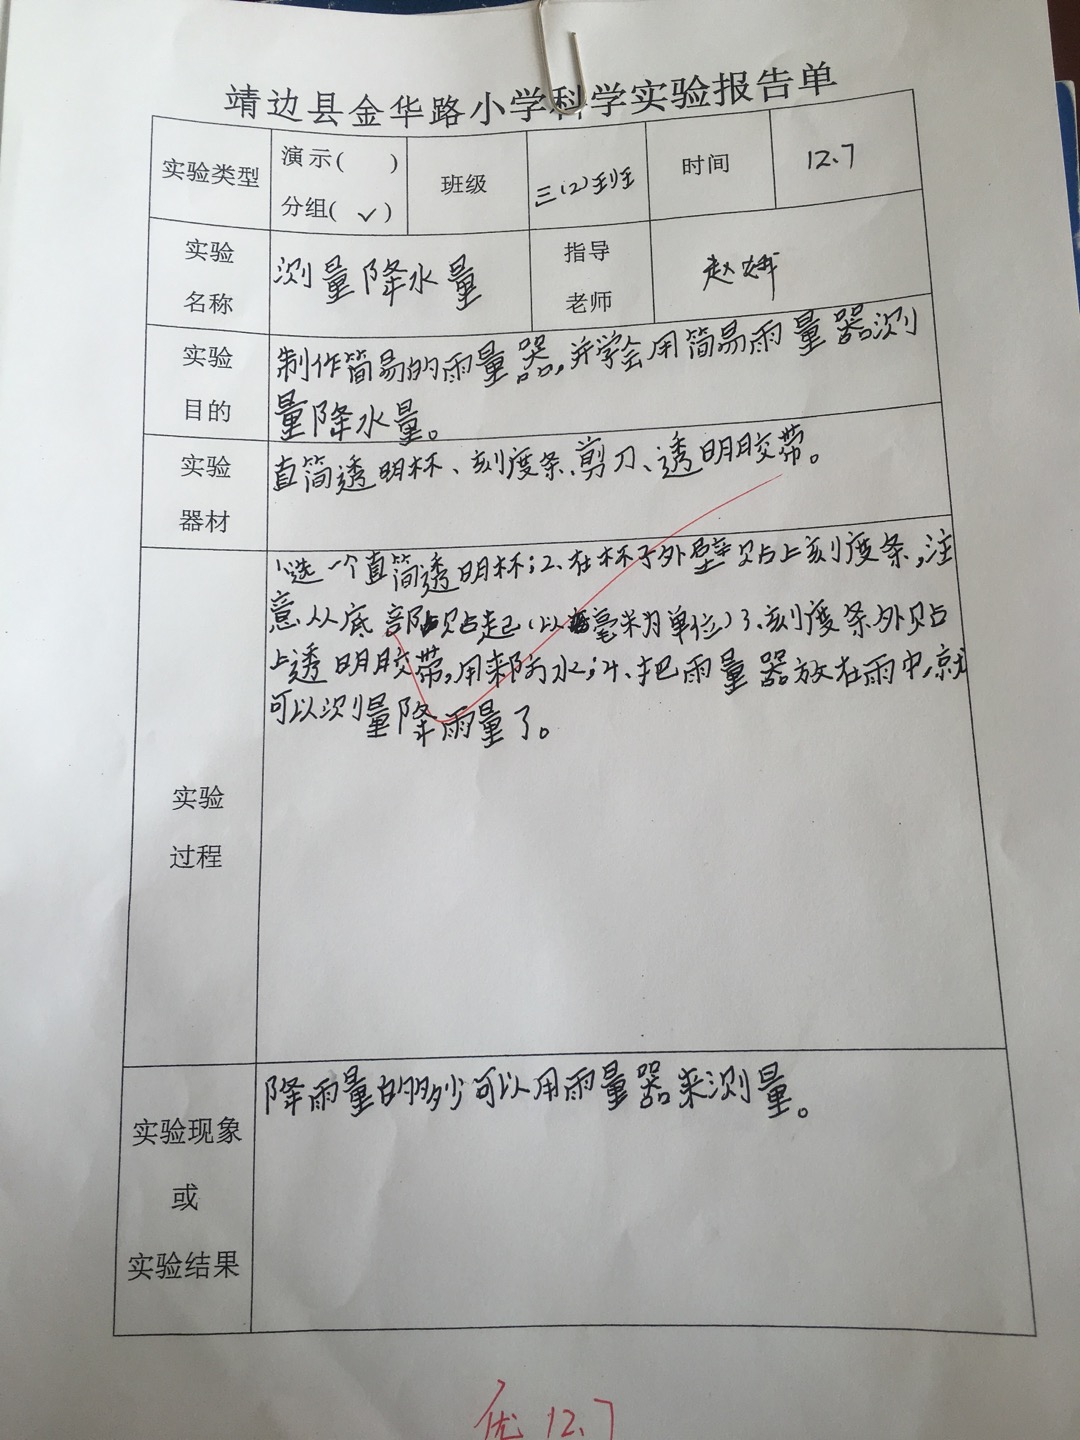 靖边县金华路小学科学实验报告单
实验类型 演示( ) 班级 三(2)班 时间 12.7
分组( ✓ )
实验 名称 测量降水量 指导 老师 赵娜
实验 目的 制作简易的雨量器,并学会用简易雨量器测
量降水量。
实验 器材 直筒透明杯、刻度条、剪刀、透明胶带。
实验 过程 1、选一个直筒透明杯;2、在杯子外壁贴上刻度条,注
意从底部贴起(以毫米为单位)3、刻度条外贴
上透明胶带,用来防水;4、把雨量器放在雨中,就
可以测量降雨量了。
实验现象 或 实验结果 降雨量的多少可以用雨量器来测量。
优 12.7